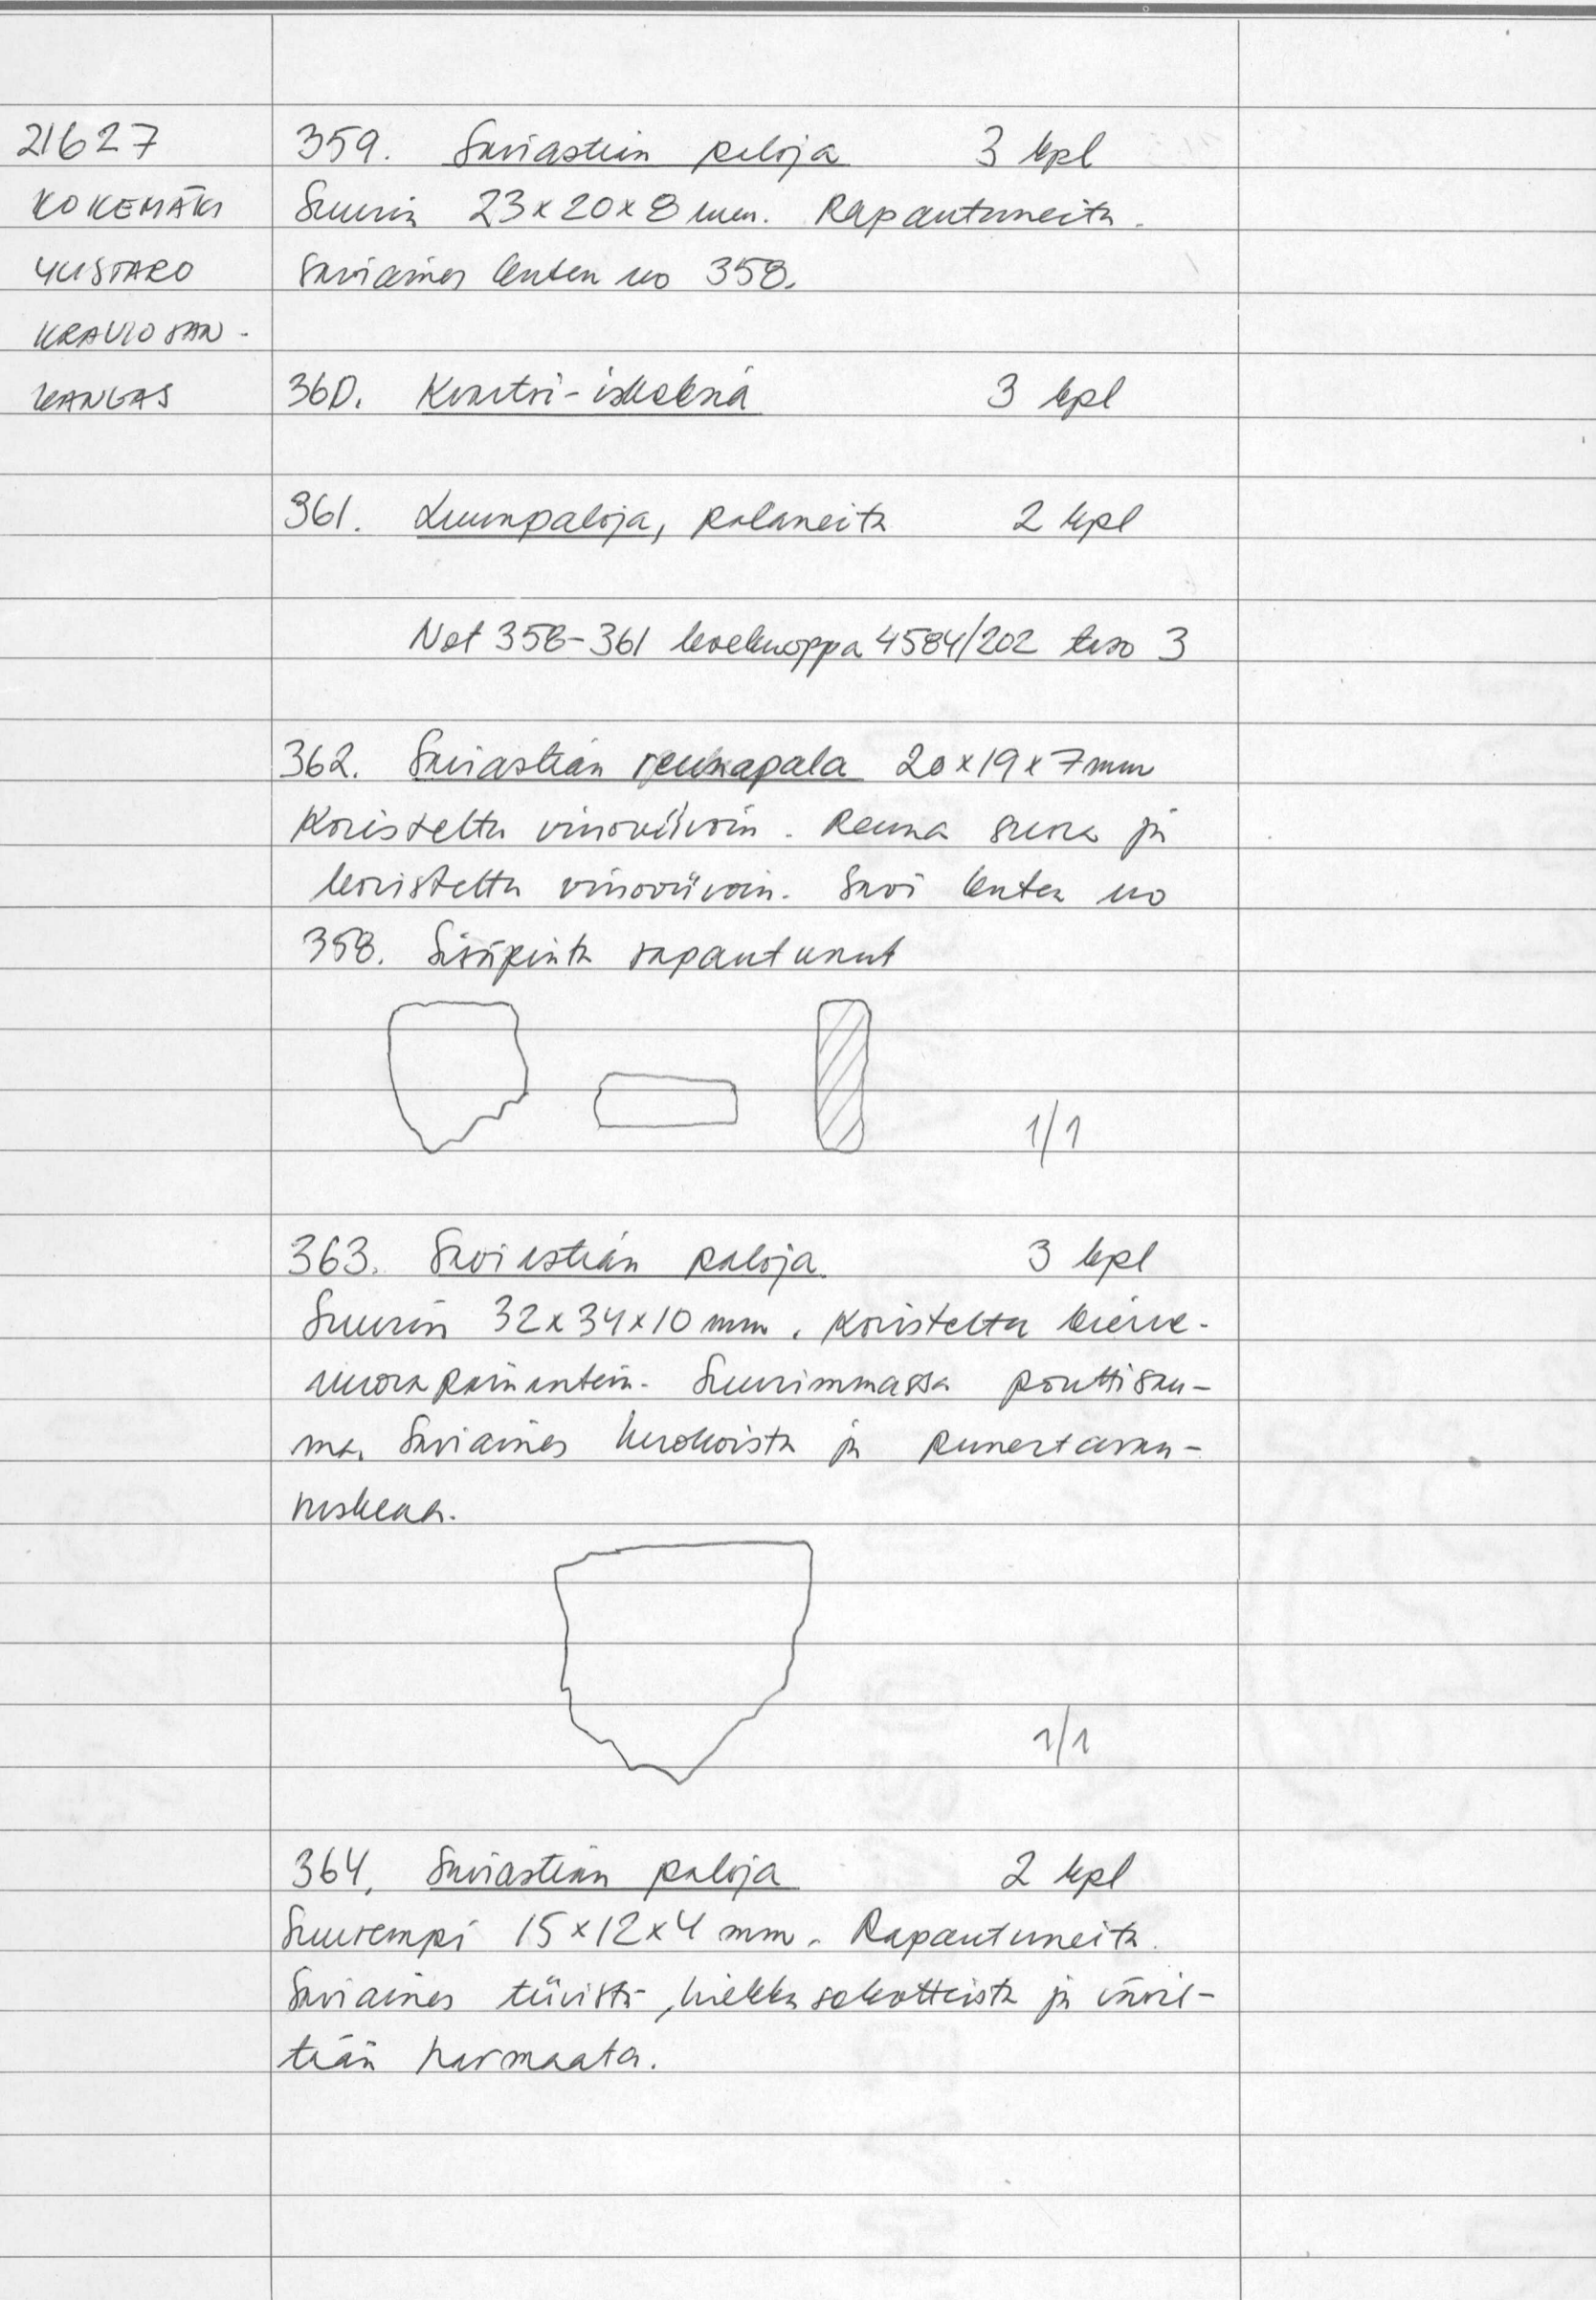 21627
KOKEMÄKI
YLISTARO
KRAVIOSAN-
KANGAS
359. Saviastian paloja 3 kpl
Suurin 23x20x8 mm. Rapautuneita.
Saviaines kuten no 358.
360. Kvartsi-iskoksia 3 kpl
361. Luunpaloja, palaneita 2 kpl
Not 358-361 koekuoppa 4584/202 taso 3
362. Saviastian reunapala 20x19x7mm
Koristeltu vinoviivoin. Reuna suora ja
koristeltu vinoviivoin. Savi kuten no
358. Sisäpinta rapautunut
1/1
363. Saviastian paloja. 3 kpl
Suurin 32x34x10 mm. Koristeltu kierre-
nuorapainantein. Suurimmassa ponttisau-
ma. Saviaines huokoista ja punertavan-
ruskeaa.
1/1
364. Saviastian paloja 2 kpl
Suurempi 15x12x4 mm. Rapautuneita.
Saviaines tiivistä, hiekkasekoitteista ja väril-
tään harmaata.